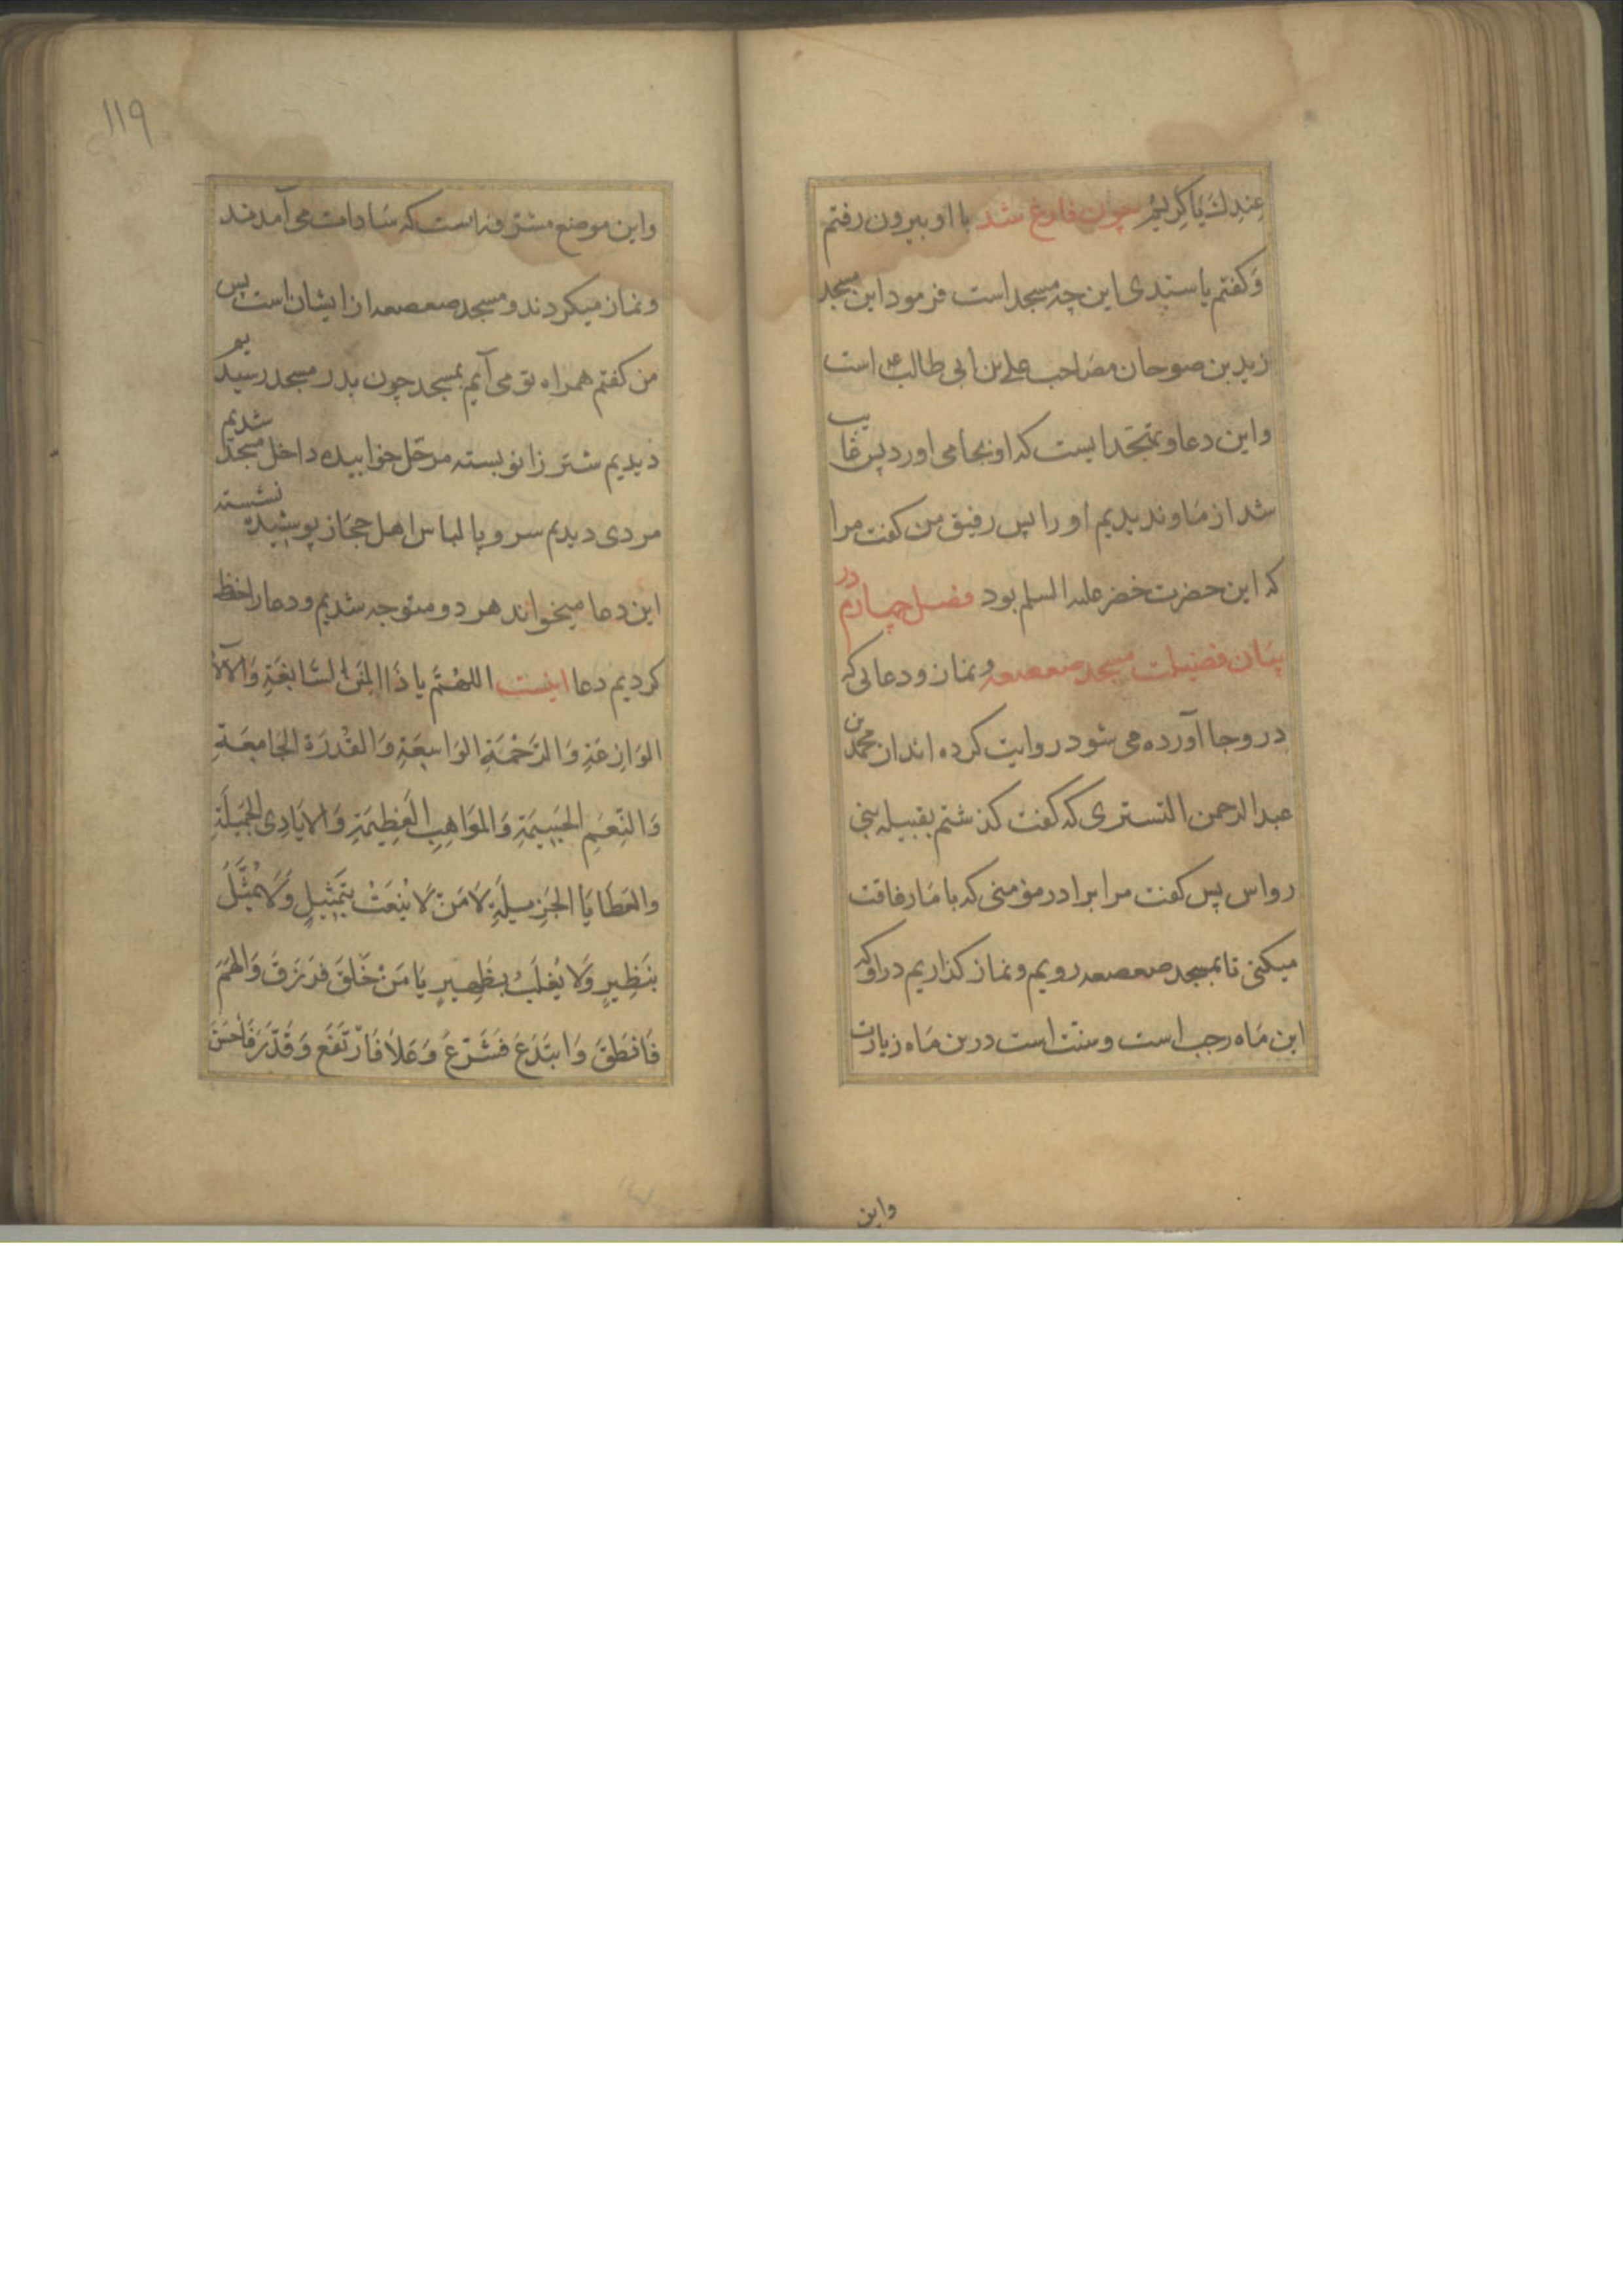 عِنْدِكَ يَا كَرِيْمُ چون فارغ شد با او بيرون رفتم
وَكفتم يا سيّدى اين چه مسجد است فرمود اين مسجد
زيد بن صوحان مصَاحب على بن ابى طالب ع است
واين دعا وتهجّد ايست كه او بجا مى اورد پس غايب
شد از مَا ونديديم او را پس رفيق من كفت مرا
كه اين حضرت خضر عليه السلم بود فصل چهارم در
بيَان فضيلت مسجد صعصعه و نماز و دعائى كه
در وجا آورده مى شود روايت كرده اند از محمد بن
عبد الرحمن التسترى كه كفت كذشتم بقبيله بنى
رواس پس كفت مرا برادر مؤمنى كه با مَا رفاقت
ميكنى تا بمسجد صعصعه رويم و نماز كذاريم در او كه
اين مَاه رجب است و سنّت است درين مَاه زيارت
واين
١١٩
واين موضع مشرّفه است كه سَادات مى آمدند
ونماز ميكردند و مسجد صعصعه از ايشان است پس
من كفتم همراه تو مى آيم بمسجد چون بدر مسجد رسيديم
ديديم شتر زانو بسته مرحّل خوابيده داخل مسجد شديم
مردى ديديم سر و پا لباس اهل حجَاز پوشيده نشسته
اين دعا ميخواند هر دو متوجه شديم و دعا را حفظ
كرديم دعا اينست اللهُمَّ يا ذَا المِنَنِ السَّابِغَةِ وَالآلآءِ
الوَازِعَةِ وَالرَّحْمَةِ الوَاسِعَةِ وَالقُدْرَة الجَامِعَةِ
وَالنِّعَمِ الجَسِيمَةِ وَالموَاهِبِ العَظِيمَةِ وَالايَادِى الجَمِيلَةِ
والعَطَايَا الجَزِيلَةِ لَا مَنْ لَا يُنعَتُ بِتَمْثِيلٍ وَلَا يُمَثَّلُ
بنَظِيرٍ وَلَا يُغلَبُ بظَهِيرٍ يَا مَنْ خَلَقَ فَرَزَقَ وَالهَمَ
فَانطَقَ وَابتَدَعَ فَشَرَعَ وَعَلَا فَارْتَفَعَ وَقَدَّرَ فَاَحْسَنَ